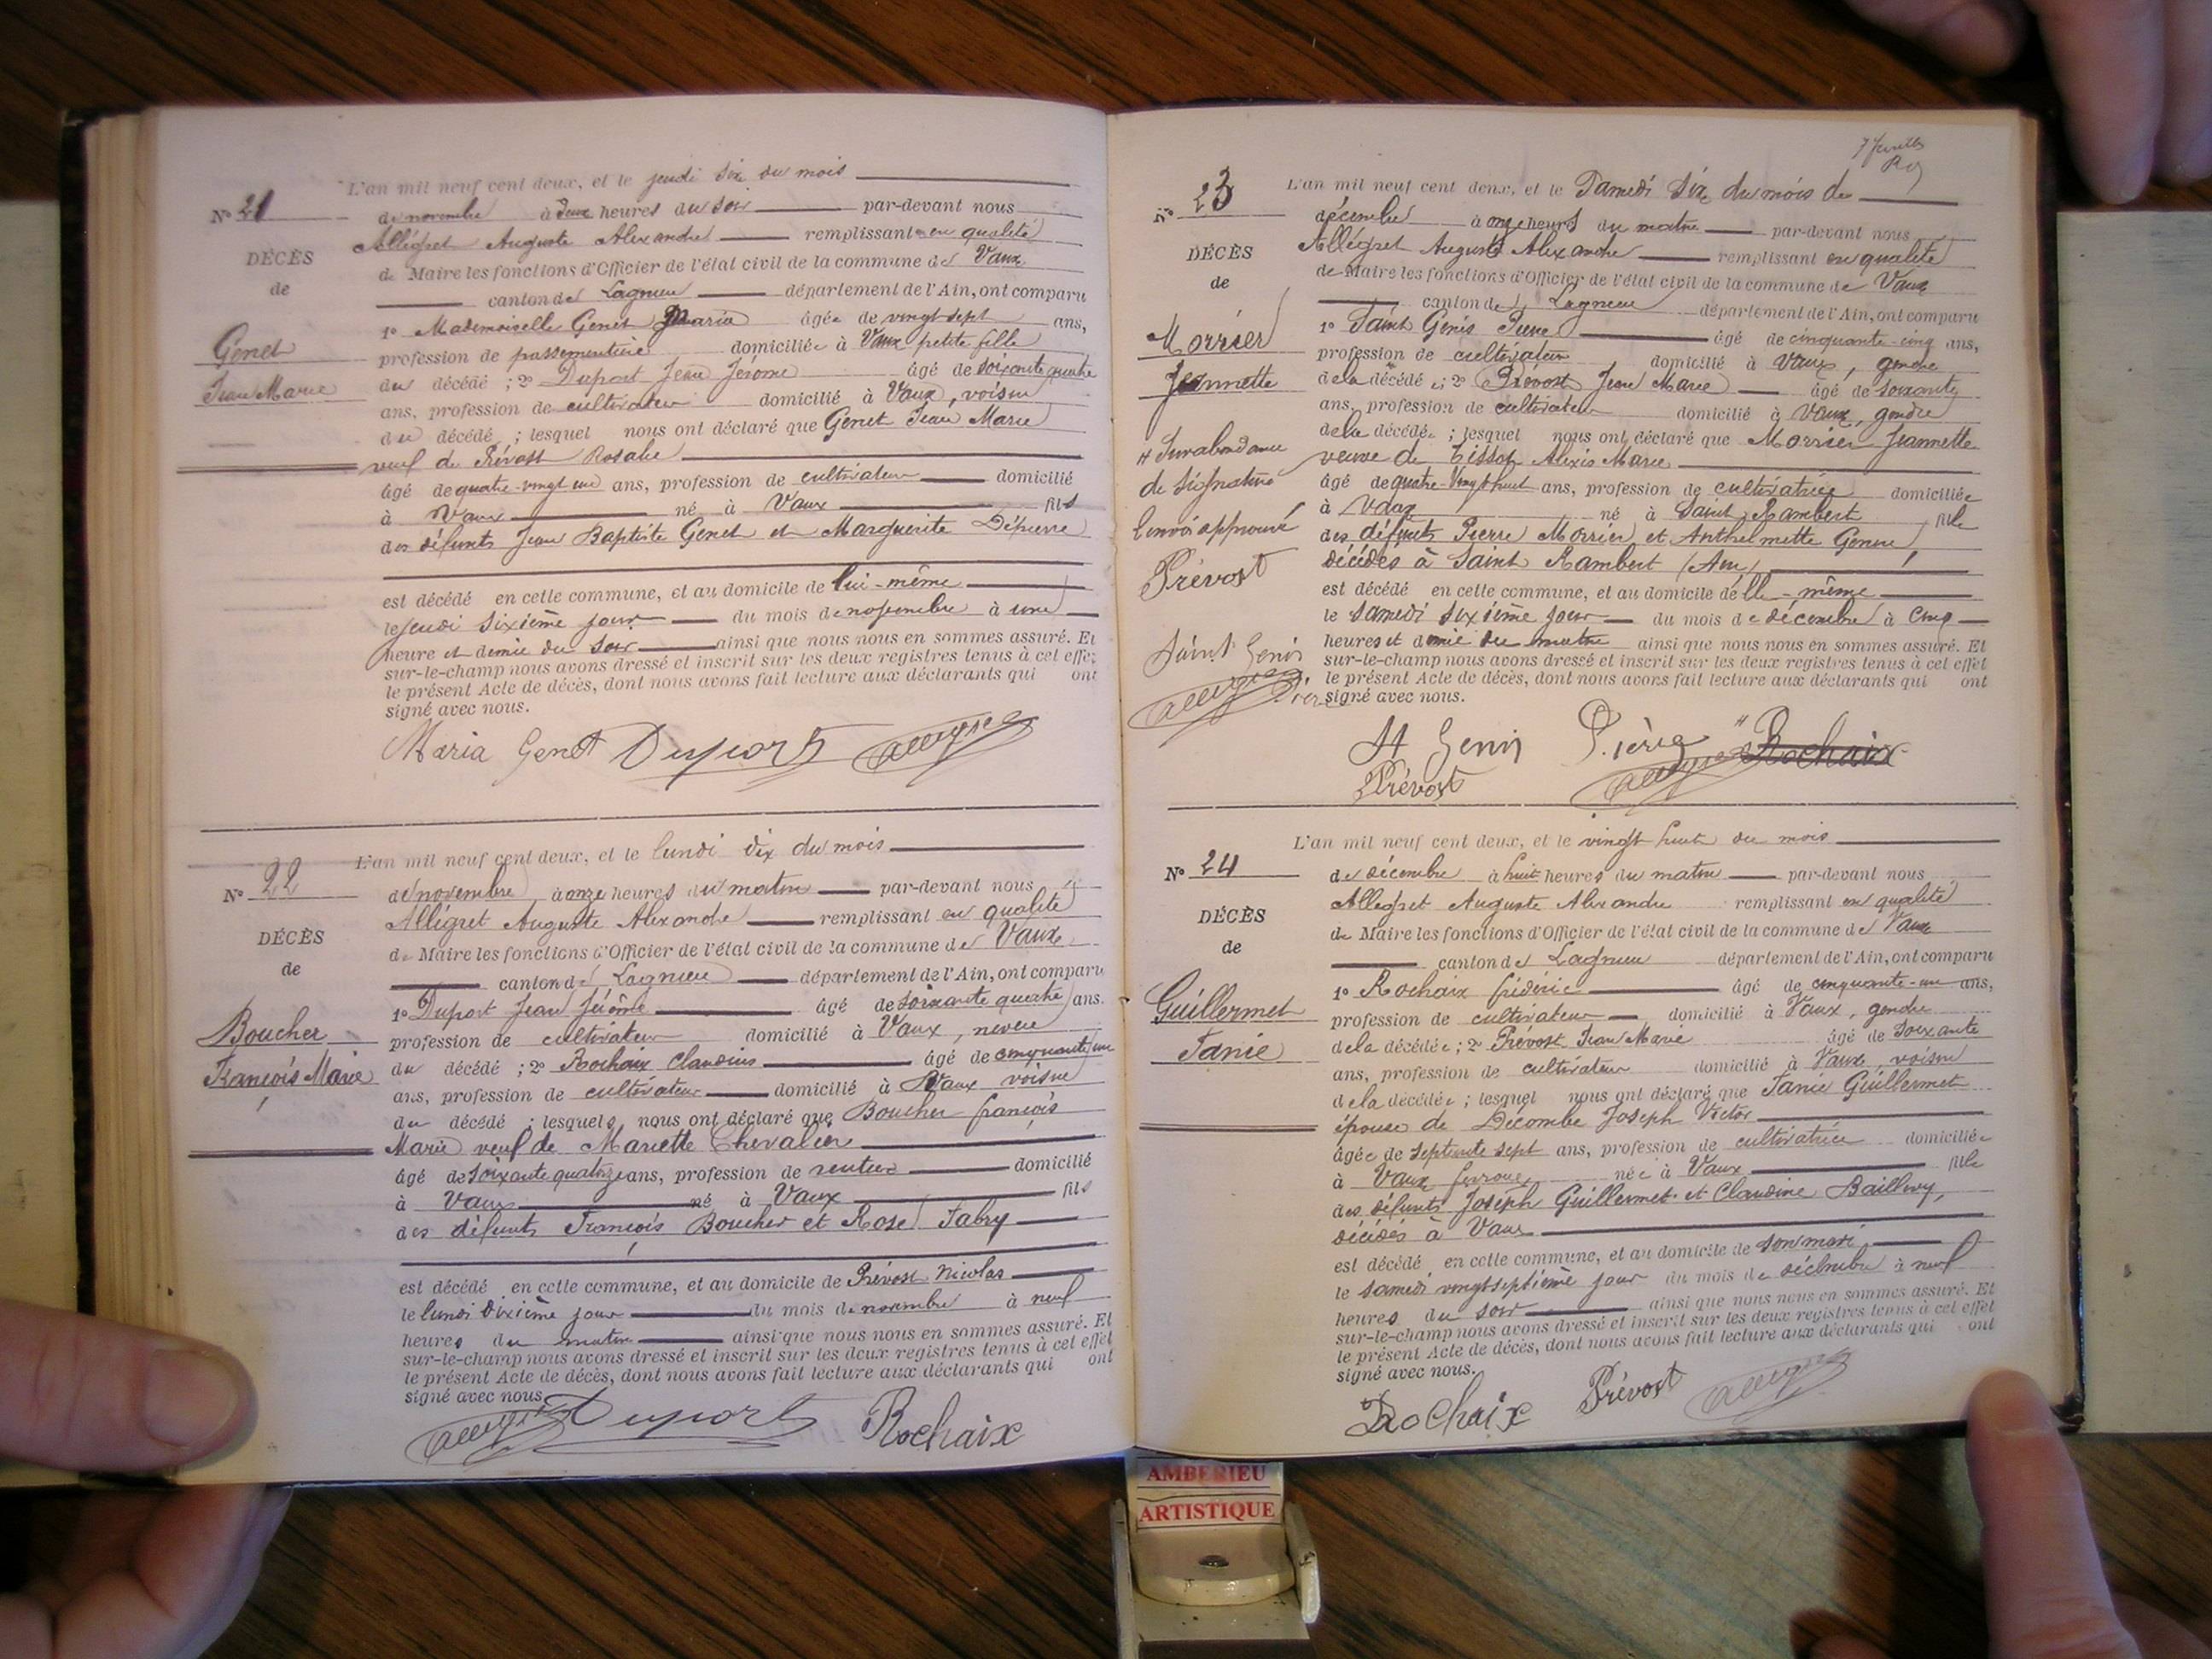 L'an mil neuf cent deux, et le jeudi six du mois
N° 21
de novembre à deux heures du soir par-devant nous
Allégret Auguste Alexandre remplissant en qualité
DÉCÈS
de Maire les fonctions d'Officier de l'état civil de la commune de Vaux
de
canton de Lagnieu département de l'Ain, ont comparu
1° Mademoiselle Genet Maria âgée de vingt-sept ans,
Genet
profession de passementière domiciliée à Vaux petite fille
Jean Marie
du décédé ; 2° Duport Jean Jérome âgé de soixante quatre
ans, profession de cultivateur domicilié à Vaux, voisin
du décédé ; lesquel nous ont déclaré que Genet Jean Marie
veuf de Prévost Rosalie
âgé de quatre-vingt un ans, profession de cultivateur domicilié
à Vaux né à Vaux fils
des défunts Jean Baptiste Genet et Marguerite Dépierre
est décédé en cette commune, et au domicile de lui-même
le jeudi sixième jour du mois de novembre à une
heure et demie du soir ainsi que nous nous en sommes assuré. Et
sur-le-champ nous avons dressé et inscrit sur les deux registres tenus à cet effet
le présent Acte de décès, dont nous avons fait lecture aux déclarants qui ont
signé avec nous.
Maria Genet Duport Allégret
L'an mil neuf cent deux, et le lundi dix du mois
N° 22
de novembre à onze heures du matin par-devant nous
Allégret Auguste Alexandre remplissant en qualité
DÉCÈS
de Maire les fonctions d'Officier de l'état civil de la commune de Vaux
de
canton de Lagnieu département de l'Ain, ont comparu
1° Duport Jean Jérôme âgé de soixante quatre ans.
Boucher
profession de cultivateur domicilié à Vaux, neveu
François Marie
du décédé ; 2° Rochaix Claudius âgé de cinquante un
ans, profession de cultivateur domicilié à Vaux voisin
du décédé ; lesquels nous ont déclaré que Boucher françois
Marie veuf de Mariette Chevalier
âgé de soixante quatorze ans, profession de rentier domicilié
à Vaux né à Vaux fils
des défunts François Boucher et Rose Fabry
est décédé en cette commune, et au domicile de Prévost Nicolas
le lundi dixième jour du mois de novembre à neuf
heures du matin ainsi que nous nous en sommes assuré. Et
sur-le-champ nous avons dressé et inscrit sur les deux registres tenus à cet effet
le présent Acte de décès, dont nous avons fait lecture aux déclarants qui ont
signé avec nous.
Allégret Duport Rochaix
L'an mil neuf cent deux, et le Samedi six du mois de
N° 23
décembre à onze heures du matin par-devant nous
Allégret Auguste Alexandre remplissant en qualité
DÉCÈS
de Maire les fonctions d'Officier de l'état civil de la commune de Vaux
de
canton de Lagnieu département de l'Ain, ont comparu
1° Saint Genis Pierre âgé de cinquante-cinq ans,
Morrier
profession de cultivateur domicilié à Vaux, gendre
Jeannette
de la décédée ; 2° Prévost Jean Marie âgé de soixante
ans, profession de cultivateur domicilié à Vaux, gendre
de la décédée ; lesquel nous ont déclaré que Morrier Jeannette
veuve de Tissot Alexis Marie
âgé de quatre-Vingt huit ans, profession de cultivatrice domiciliée
à Vaux né à Saint Rambert fille
des défunts Pierre Morrier et Anthelmette Genin,
décédés à Saint Rambert (Ain)
est décédé en cette commune, et au domicile d'elle-même
le samedi sixième jour du mois de décembre à cinq
heures et demie du matin ainsi que nous nous en sommes assuré. Et
sur-le-champ nous avons dressé et inscrit sur les deux registres tenus à cet effet
le présent Acte de décès, dont nous avons fait lecture aux déclarants qui ont
signé avec nous.
# Surabondance
de signature
l'envoi approuvé
Prévost
Saint Genis
Allégret
St Genis Pière # Rochaix
Prévost Allégret
L'an mil neuf cent deux, et le vingt huit du mois
N° 24
de décembre à huit heures du matin par-devant nous
Allégret Auguste Alexandre remplissant en qualité
DÉCÈS
de Maire les fonctions d'Officier de l'état civil de la commune de Vaux
de
canton de Lagnieu département de l'Ain, ont comparu
1° Rochaix frédéric âgé de cinquante-un ans,
Guillermet
profession de cultivateur domicilié à Vaux, gendre
Fanie
de la décédée ; 2° Prévost Jean Marie âgé de soixante
ans, profession de cultivateur domicilié à Vaux, voisin
de la décédée ; lesquel nous ont déclaré que Fanie Guillermet
épouse de Décombe Joseph Victor
âgée de septante sept ans, profession de cultivatrice domiciliée
à Vaux née à Vaux fille
des défunts Joseph Guillermet et Claudine Baillivy,
décédés à Vaux
est décédé en cette commune, et au domicile de son mari
le samedi vingt septième jour du mois de décembre à neuf
heures du soir ainsi que nous nous en sommes assuré. Et
sur-le-champ nous avons dressé et inscrit sur les deux registres tenus à cet effet
le présent Acte de décès, dont nous avons fait lecture aux déclarants qui ont
signé avec nous.
Rochaix Prévost Allégret
AMBERIEU
ARTISTIQUE